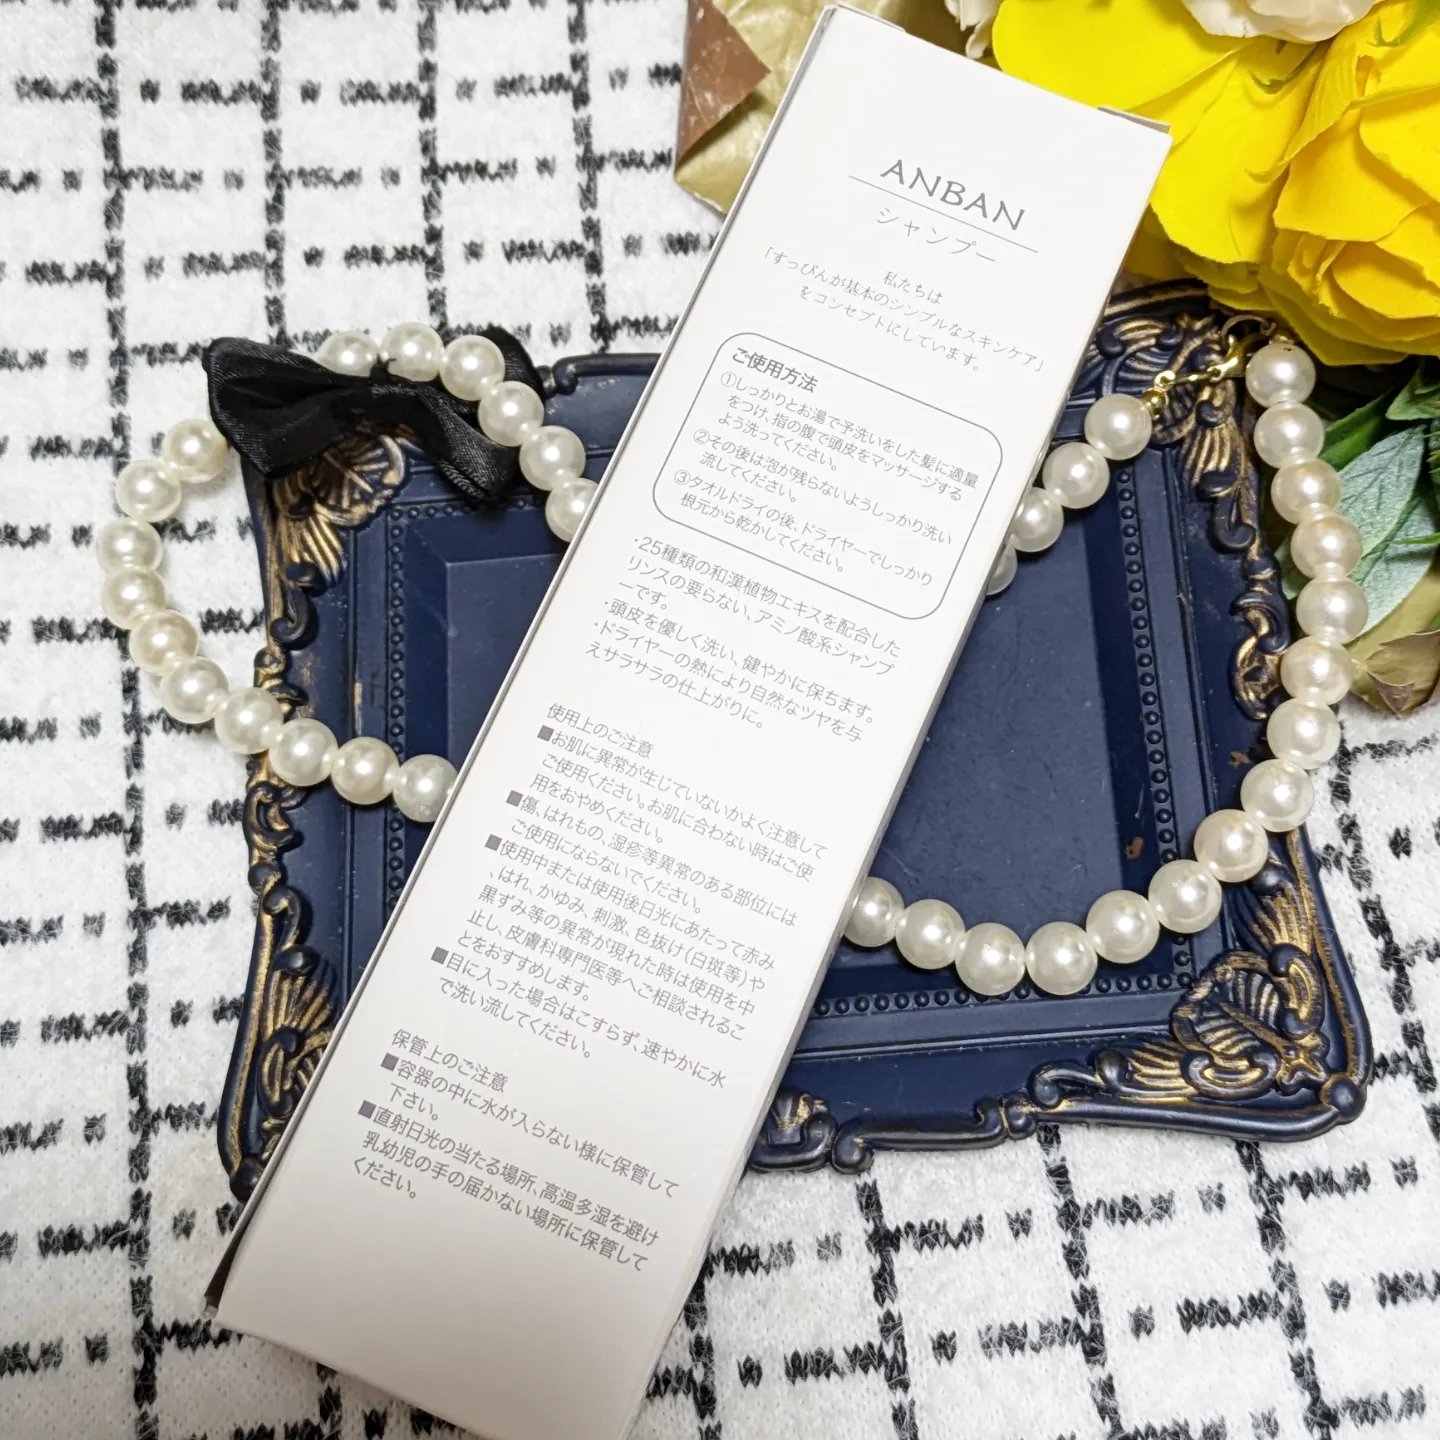 ANBAN
シャンプー
私たちは
「すっぴんが基本のシンプルなスキンケア」
をコンセプトにしています。
ご使用方法
①しっかりとお湯で予洗いをした髪に適量
をつけ、指の腹で頭皮をマッサージする
よう洗ってください。
②その後は泡が残らないようしっかり洗い
流してください。
③タオルドライの後、ドライヤーでしっかり
根元から乾かしてください。
・25種類の和漢植物エキスを配合した
リンスの要らない、アミノ酸系シャンプ
ーです。
・頭皮を優しく洗い、健やかに保ちます。
・ドライヤーの熱により自然なツヤを与
えサラサラの仕上がりに。
使用上のご注意
■お肌に異常が生じていないかよく注意して
ご使用ください。お肌に合わない時はご使
用をおやめください。
■傷、はれもの、湿疹等異常のある部位には
ご使用にならないでください。
■使用中または使用後日光にあたって赤み
、はれ、かゆみ、刺激、色抜け(白斑等)や
黒ずみ等の異常が現れた時は使用を中
止し、皮膚科専門医等へご相談されるこ
とをおすすめします。
■目に入った場合はこすらず、速やかに水
で洗い流してください。
保管上のご注意
■容器の中に水が入らない様に保管して
下さい。
■直射日光の当たる場所、高温多湿を避け
乳幼児の手の届かない場所に保管して
ください。